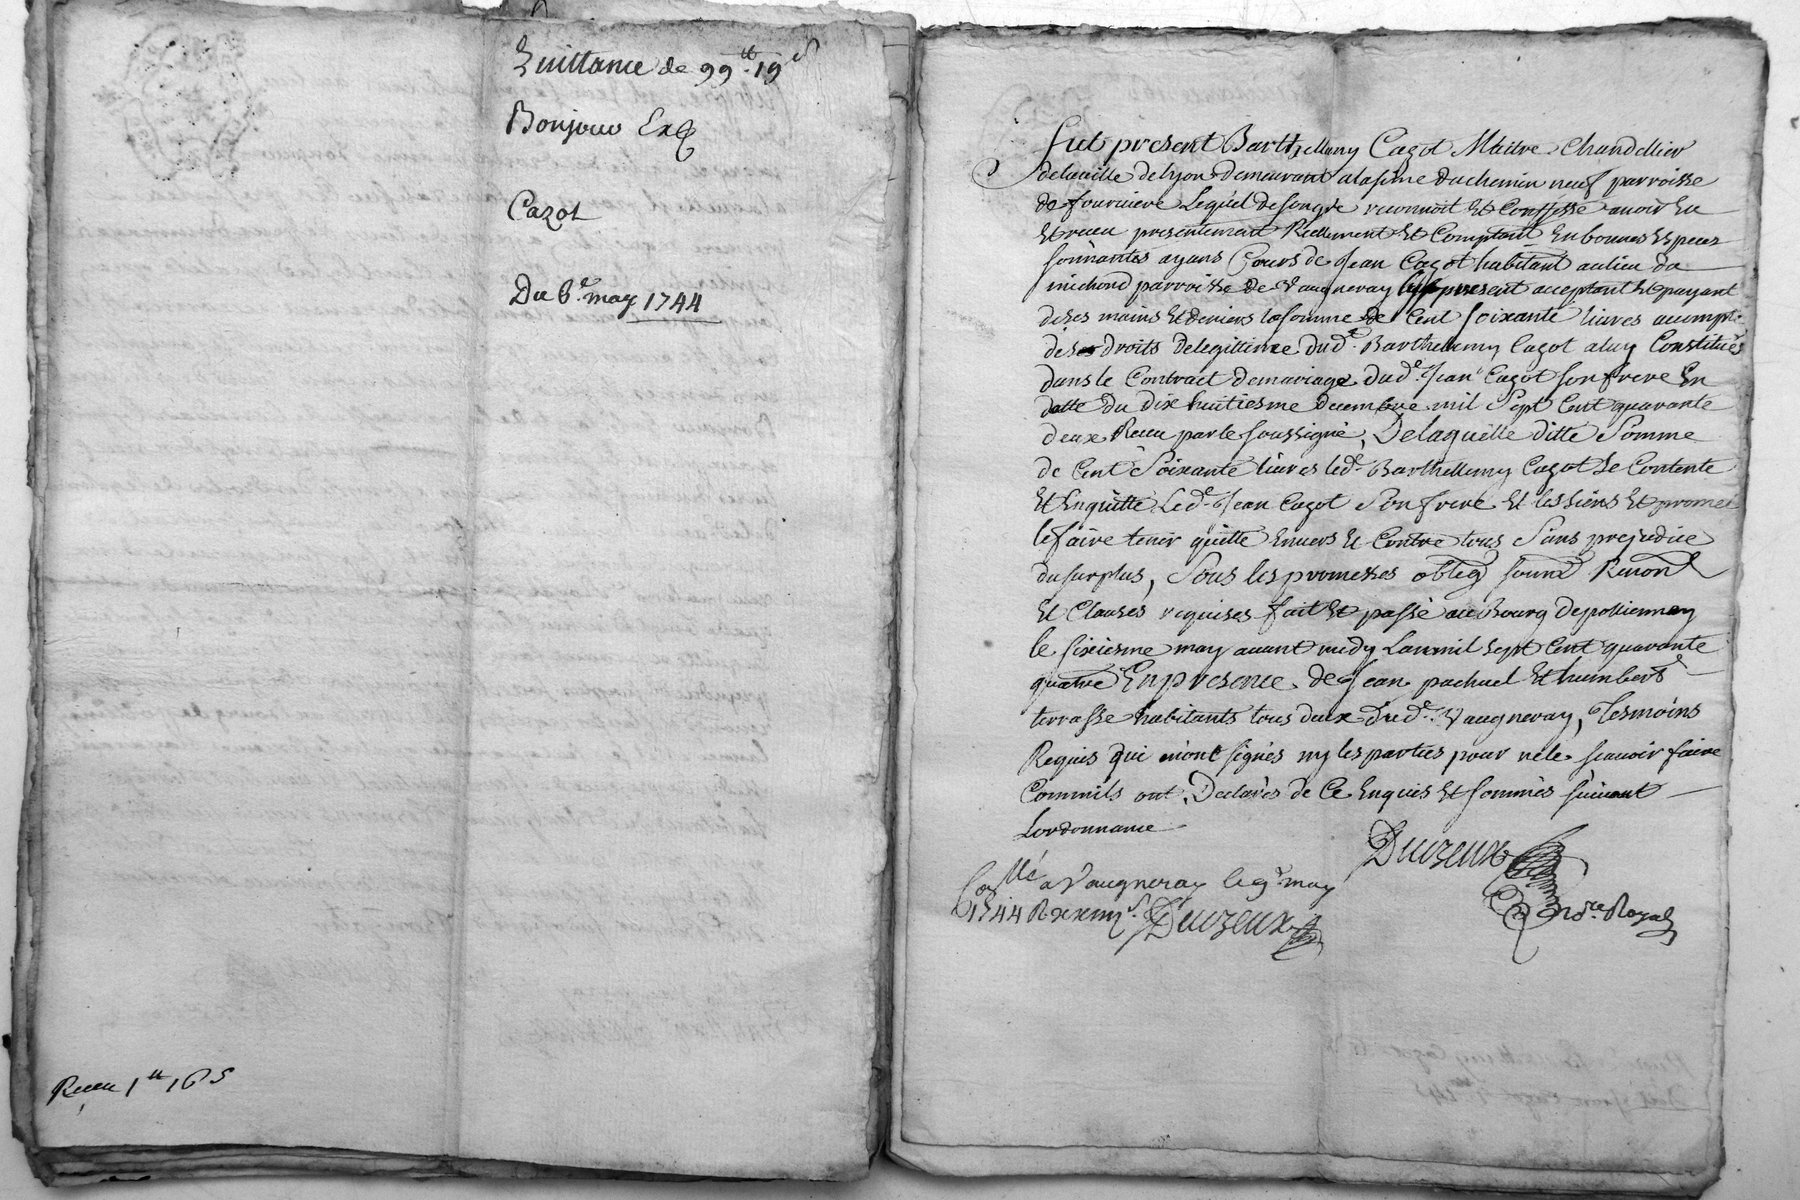 Quittance de 99lt 19s
Bonjour Exp
Cazot
Du 6e may 1744
Receu 1lt 16s
Fut present Barthellemy Cazot Maitre Chandellier
delaville delyon demeurant alasime duchemin neuf parroisse
de fourviere Lequel desongre reconnoit Et Confesse avoir Eu
Et receu presentement Réellement Et Comptant En bonnes Especes
sonnantes ayans Cours de Jean Cazot habitant aulieu du
michond parroisse de Vaugneray present acceptant Et payant
deses mains Et deniers la somme de Cent soixante livres acompte
deses droits delegittime dud.t Barthellemy Cazot aluy Constitués
dans le Contract demariage dud.t Jean Cazot son frere En
datte du dix huitiesme decembre mil Sept Cent quarante
deux Receu par le soussigné, De laquelle ditte Somme
de Cent Soixante livres led.t Barthellemy Cazot se Contente
Et Enquitte Led.t Jean Cazot Son frere Et les siens Et promet
le faire tenir quitte Envers Et Contre tous Sans prejudice
du surplus, Sous les promesses oblig soum Renon
Et Clauses requises fait Et passé au Bourg de pollionnay
le sixiesme may avant midy Lan mil sept Cent quarante
quatre En presence de Jean pachuel Et humbert
terrasse habitants tous deux dud.t Vaugneray, Tesmoins
Requis qui n'ont signés ny les parties pour ne le scavoir faire
Comm'ils ont Declarés de Ce Enquis Et sommés suivant
Lordonnance
Duvzeux
no.re Royal
Co.llé a Vaugneray le 9e may
1744 R
Duvzeux